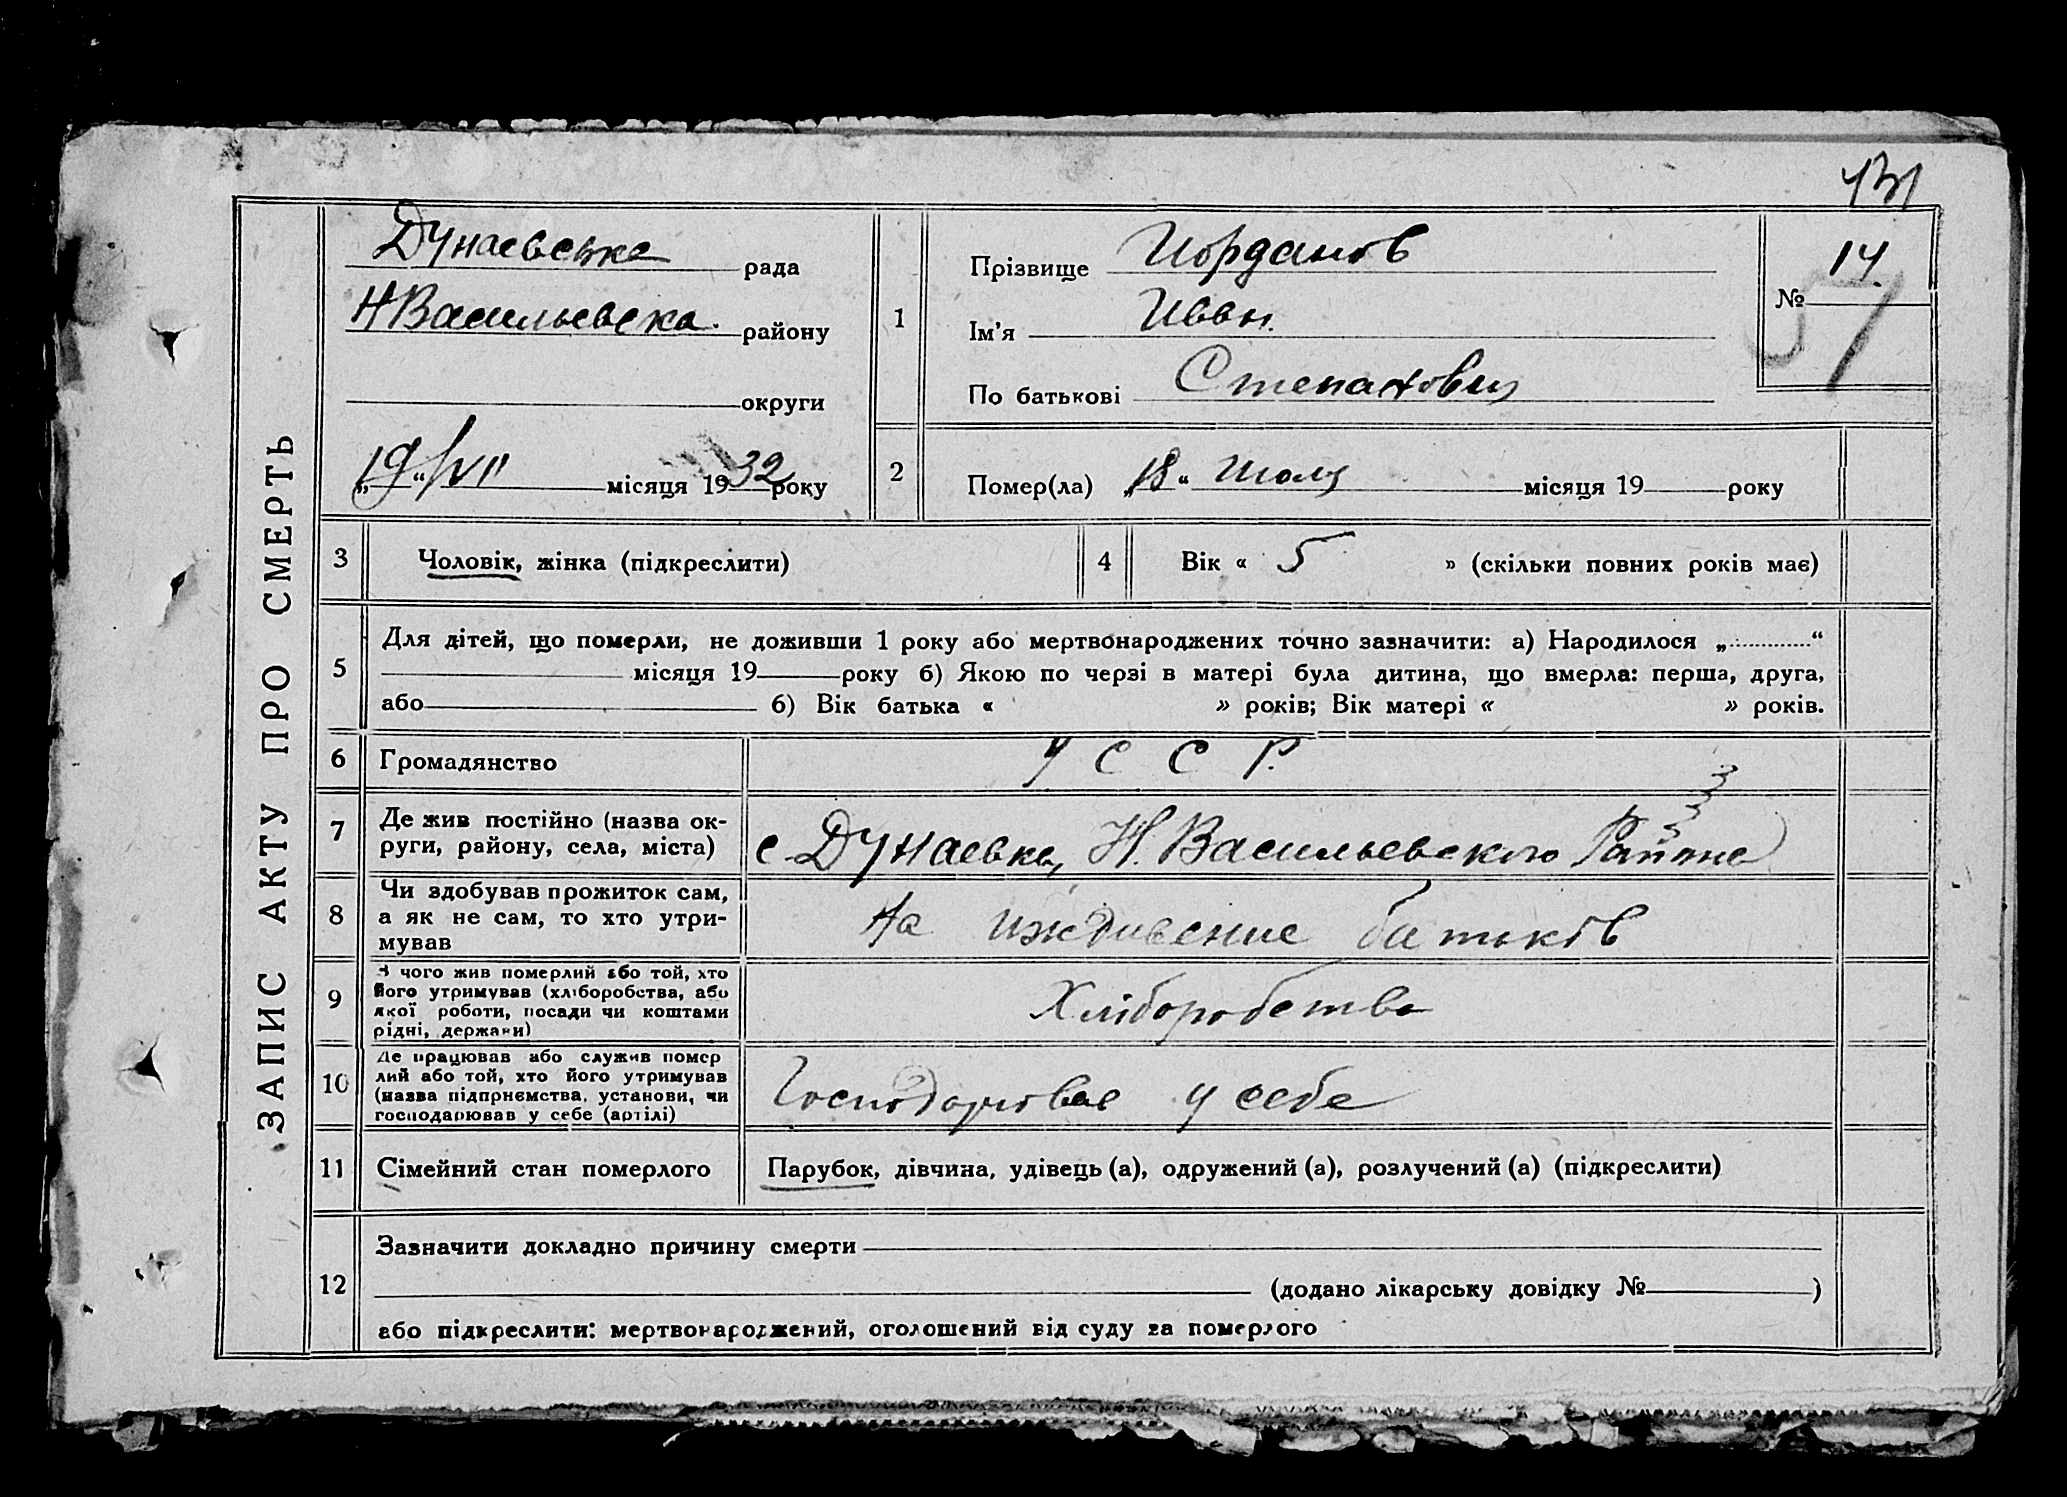 131
ЗАПИС АКТУ ПРО СМЕРТЬ
Дунаевське рада
Н Васильевска району
округи
„19“ /VII місяця 1932 року
1
Прізвище Иорданов
Ім'я Иван
По батькові Степанович
№ 14
57
2
Помер(ла) „18“ Июля місяця 19 року
3
Чоловік, жінка (підкреслити)
4
Вік « 5 » (скільки повних років має)
5
Для дітей, що померли, не доживши 1 року або мертвонароджених точно зазначити: а) Народилося „ “
місяця 19 року б) Якою по черзі в матері була дитина, що вмерла: перша, друга,
або б) Вік батька « » років; Вік матері « » років.
6
Громадянство
У С С Р.
7
Де жив постійно (назва ок-
руги, району, села, міста)
с. Дунаевка, Н. Васильевского Района
8
Чи здобував прожиток сам,
а як не сам, то хто утри-
мував
На иждивение батьків
9
З чого жив померлий або той, хто
його утримував (хліборобства, або
якої роботи, посади чи коштами
рідні, держави)
Хліборобство
10
Де працював або служив помер
лий або той, хто його утримував
(назва підприємства, установи, чи
господарював у себе (артілі)
Господарював у себе
11
Сімейний стан померлого
Парубок, дівчина, удівець (а), одружений (а), розлучений (а) (підкреслити)
12
Зазначити докладно причину смерти
(додано лікарську довідку № )
або підкреслити: мертвонароджений, оголошений від суду за померлого